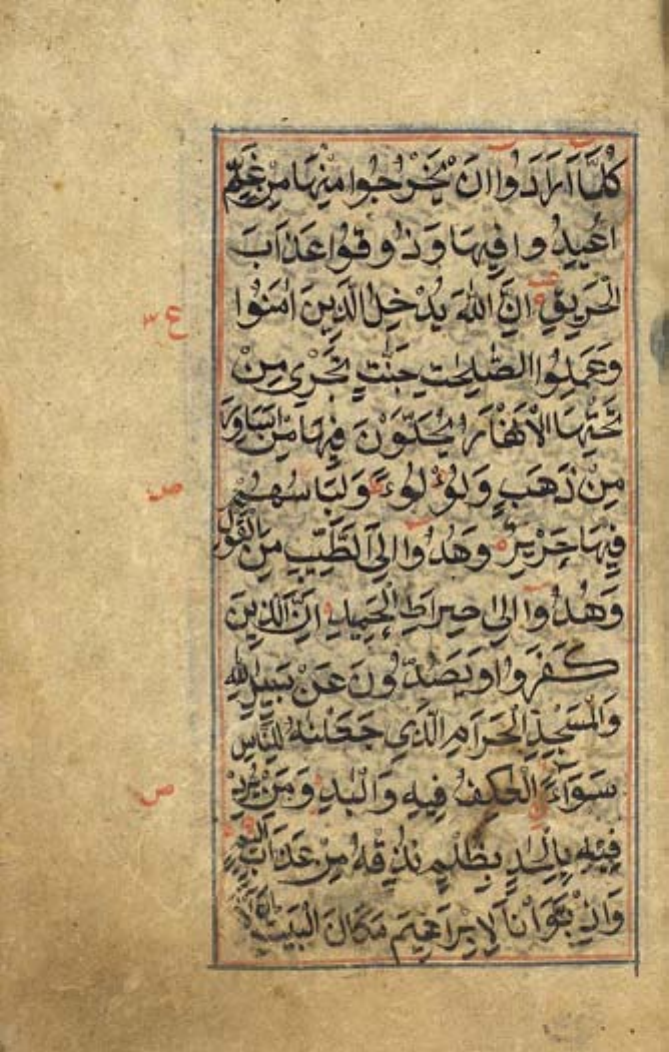 كُلَّمَا اَرَادُوا اَنْ يَخْرُجُوا مِنْهَا مِنْ غَمٍّ
اُعِيدُوا فِيهَا وَذُوقُوا عَذَابَ
الْحَرِيقِ اِنَّ اللّٰهَ يُدْخِلُ الَّذِينَ اٰمَنُوا
ع ٣
وَعَمِلُوا الصّٰلِحٰتِ جَنّٰتٍ تَجْرِي مِنْ
تَحْتِهَا الْاَنْهَارُ يُحَلَّوْنَ فِيهَا مِنْ اَسَاوِرَ
مِنْ ذَهَبٍ وَلُؤْلُوءً وَلِبَاسُهُمْ
ص
فِيهَا حَرِيرٌ وَهُدُوا اِلَى الطَّيِّبِ مِنَ الْقَوْلِ
وَهُدُوا اِلٰى صِرَاطِ الْحَمِيدِ اِنَّ الَّذِينَ
كَفَرُوا وَيَصُدُّونَ عَنْ سَبِيلِ اللّٰهِ
وَالْمَسْجِدِ الْحَرَامِ الَّذِي جَعَلْنٰهُ لِلنَّاسِ
سَوَآءً الْعٰكِفُ فِيهِ وَالْبَادِ وَمَنْ يُرِدْ
ص
فِيهِ بِاِلْحَادٍ بِظُلْمٍ نُذِقْهُ مِنْ عَذَابٍ اَلِيمٍ
وَاِذْ بَوَّاْنَا لِاِبْرَاهِيمَ مَكَانَ الْبَيْتِ